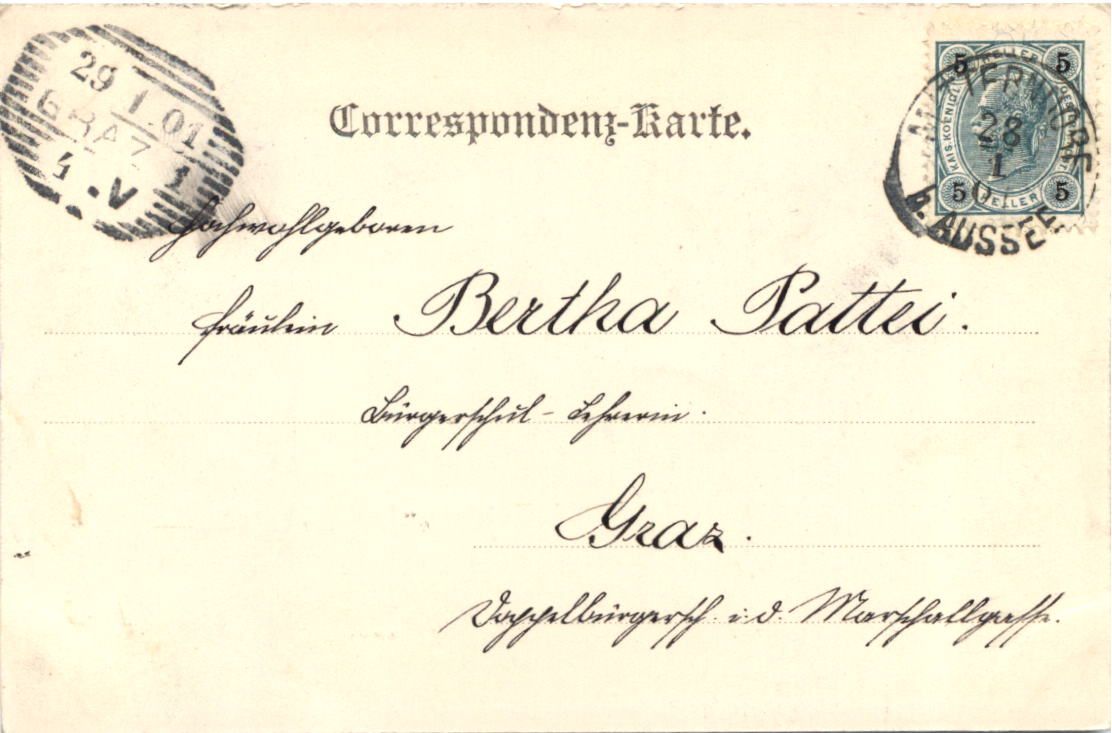 29 1.01
GRAZ 1
4.V
Correspondenz-Karte.
5 HELLER 5
KAIS. KOENIGL.
5 HELLER 5
MITTERNDORF
28
1
b. AUSSEE
Hochwohlgeboren
Fräulein Bertha Pattei.
Bürgerschul-Lehrerin.
Graz.
Doppelbürgersch. i. d. Marschallgasse.